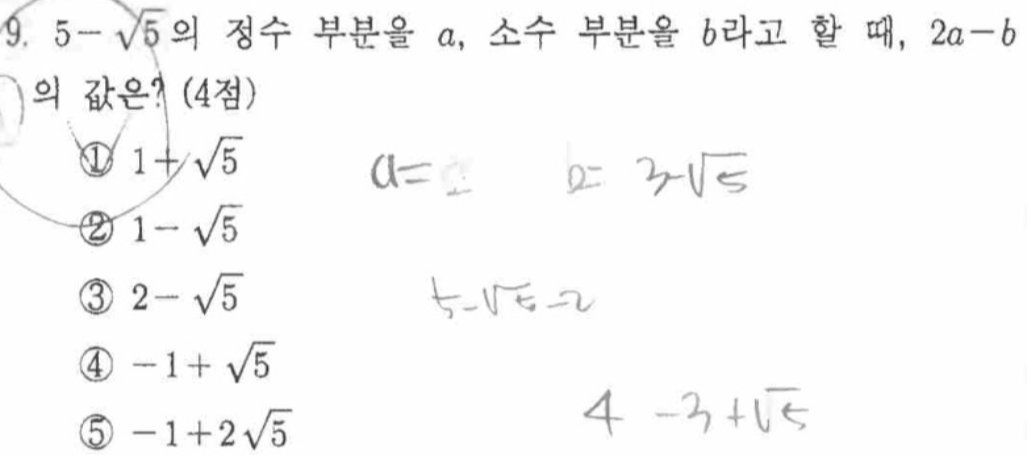 9. 5-√5의 정수 부분을 a, 소수 부분을 b라고 할 때, 2a-b
의 값은? (4점)
① 1+√5
a= 2 b= 3-√5
② 1-√5
③ 2-√5
5-√5-2
④ -1+√5
4 -3+√5
⑤ -1+2√5